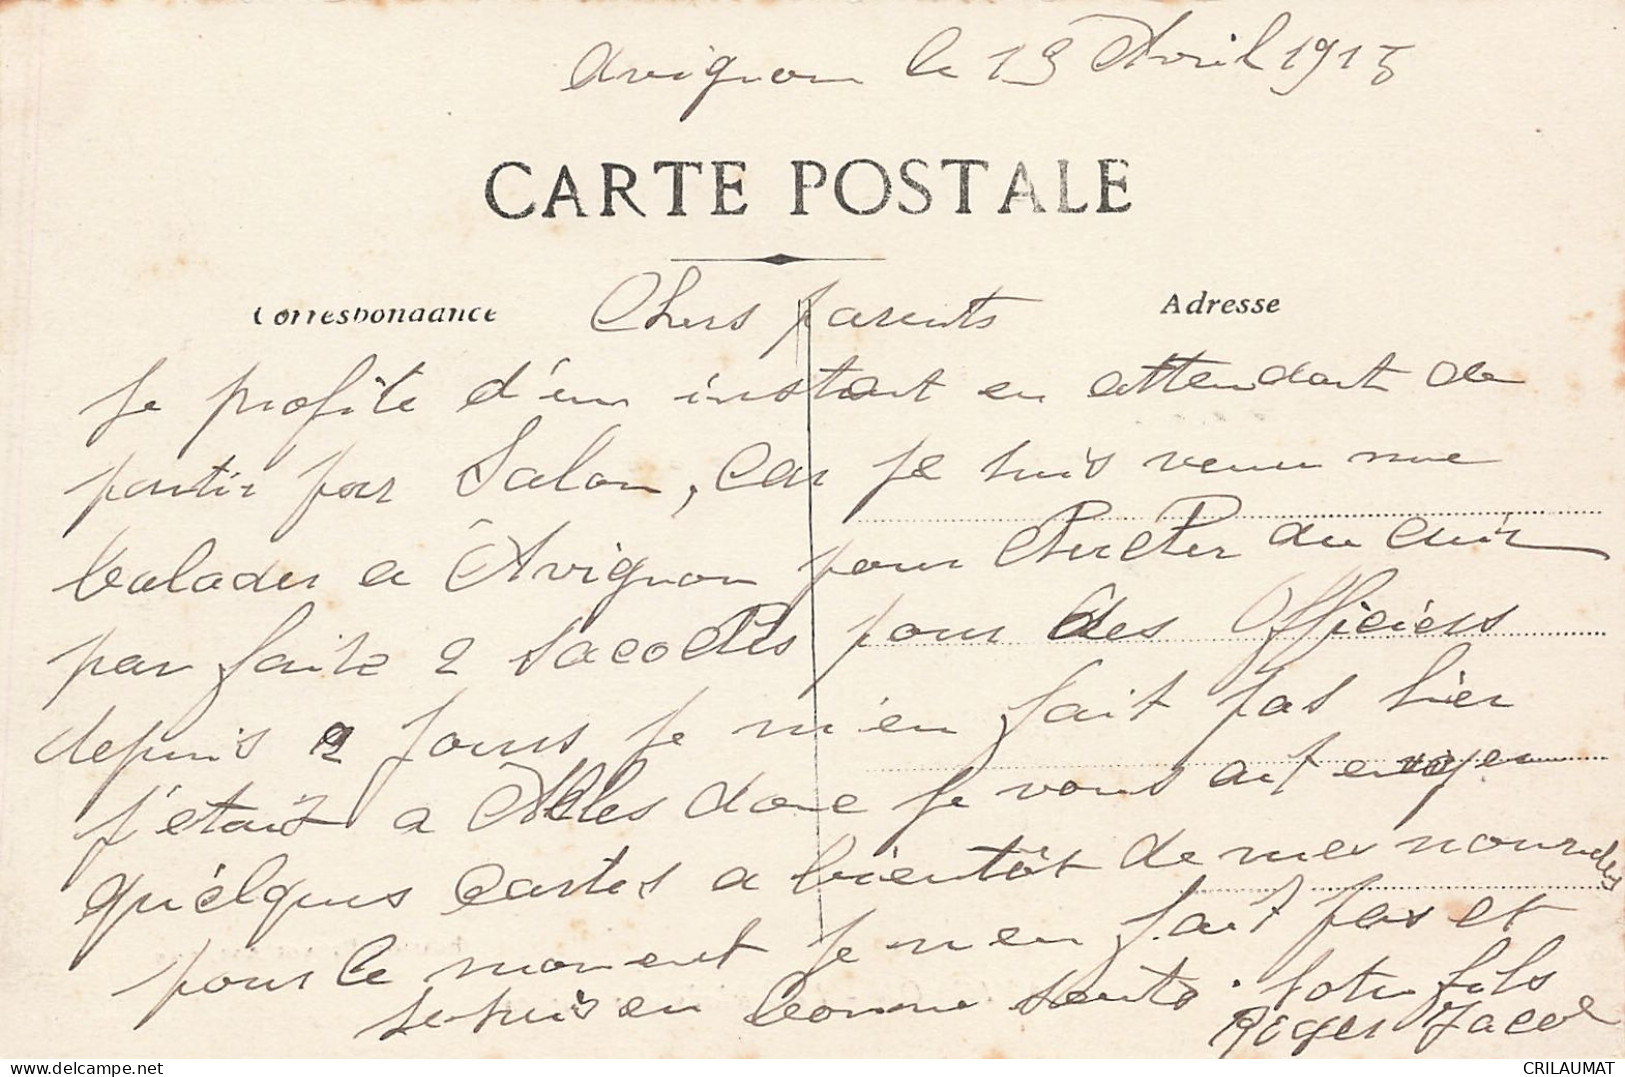 Avignon le 13 Avril 1915
CARTE POSTALE
Correspondance Chers parents Adresse
Je profite d'un instant en attendant de
partir pour Salon, car je suis venu me
balader a Avignon pour chercher du cuir
par faire 2 sacoches pour des Officiers
depuis 2 jours je m'en fait pas hier
j'etais a Arles donc je vous ait envoyer
quélques cartes a bientôt de mes nouvelles
pour le moment je m'en fait pas et
je suis en bonne sante. votre fils
Roger Jacob
delcampe.net
CRILAUMAT